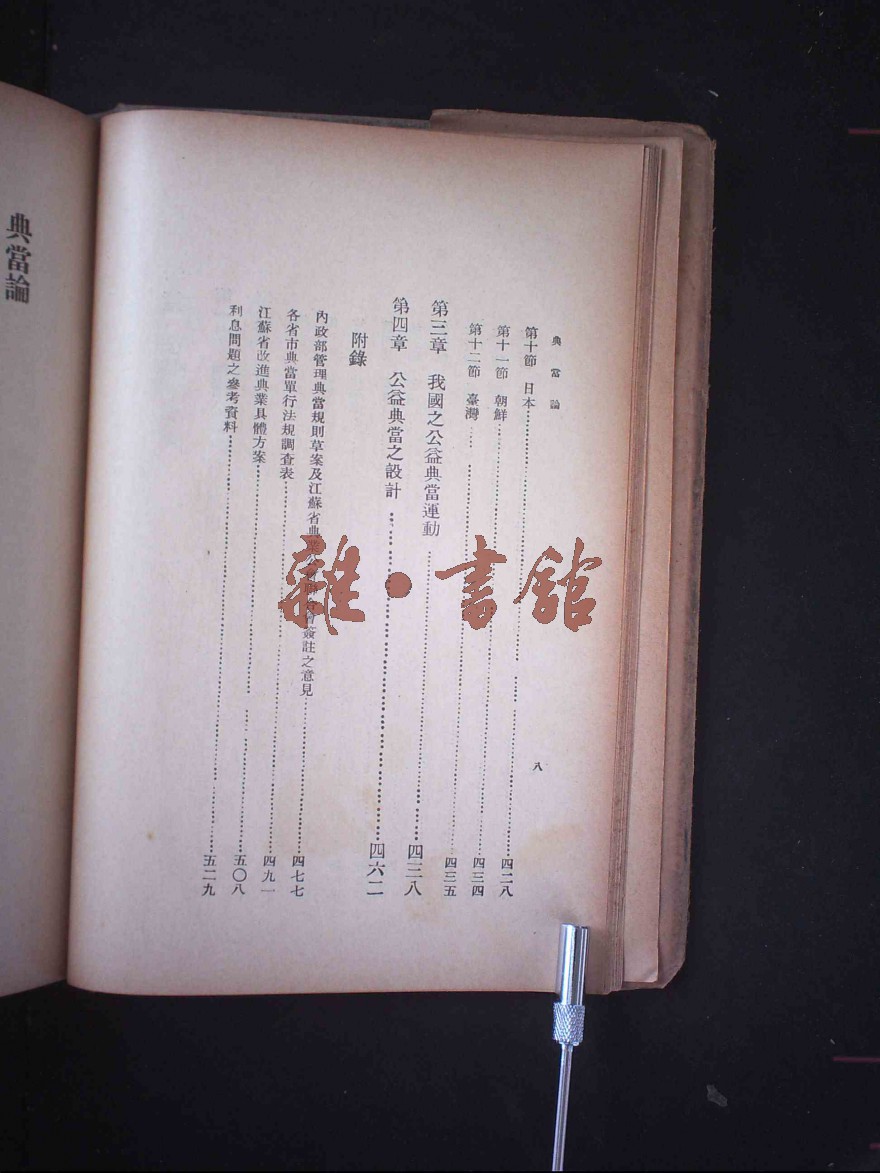 典當論
八
第十節 日本 四二八
第十一節 朝鮮 四三四
第十二節 臺灣 四三五
第三章 我國之公益典當運動 四三八
第四章 公益典當之設計 四六二
附錄
內政部管理典當規則草案及江蘇省典業 簽註之意見 四七七
各省市典當單行法規調查表 四九一
江蘇省改進典業具體方案 五〇八
利息問題之參考資料 五二九
典當論
雜·書館